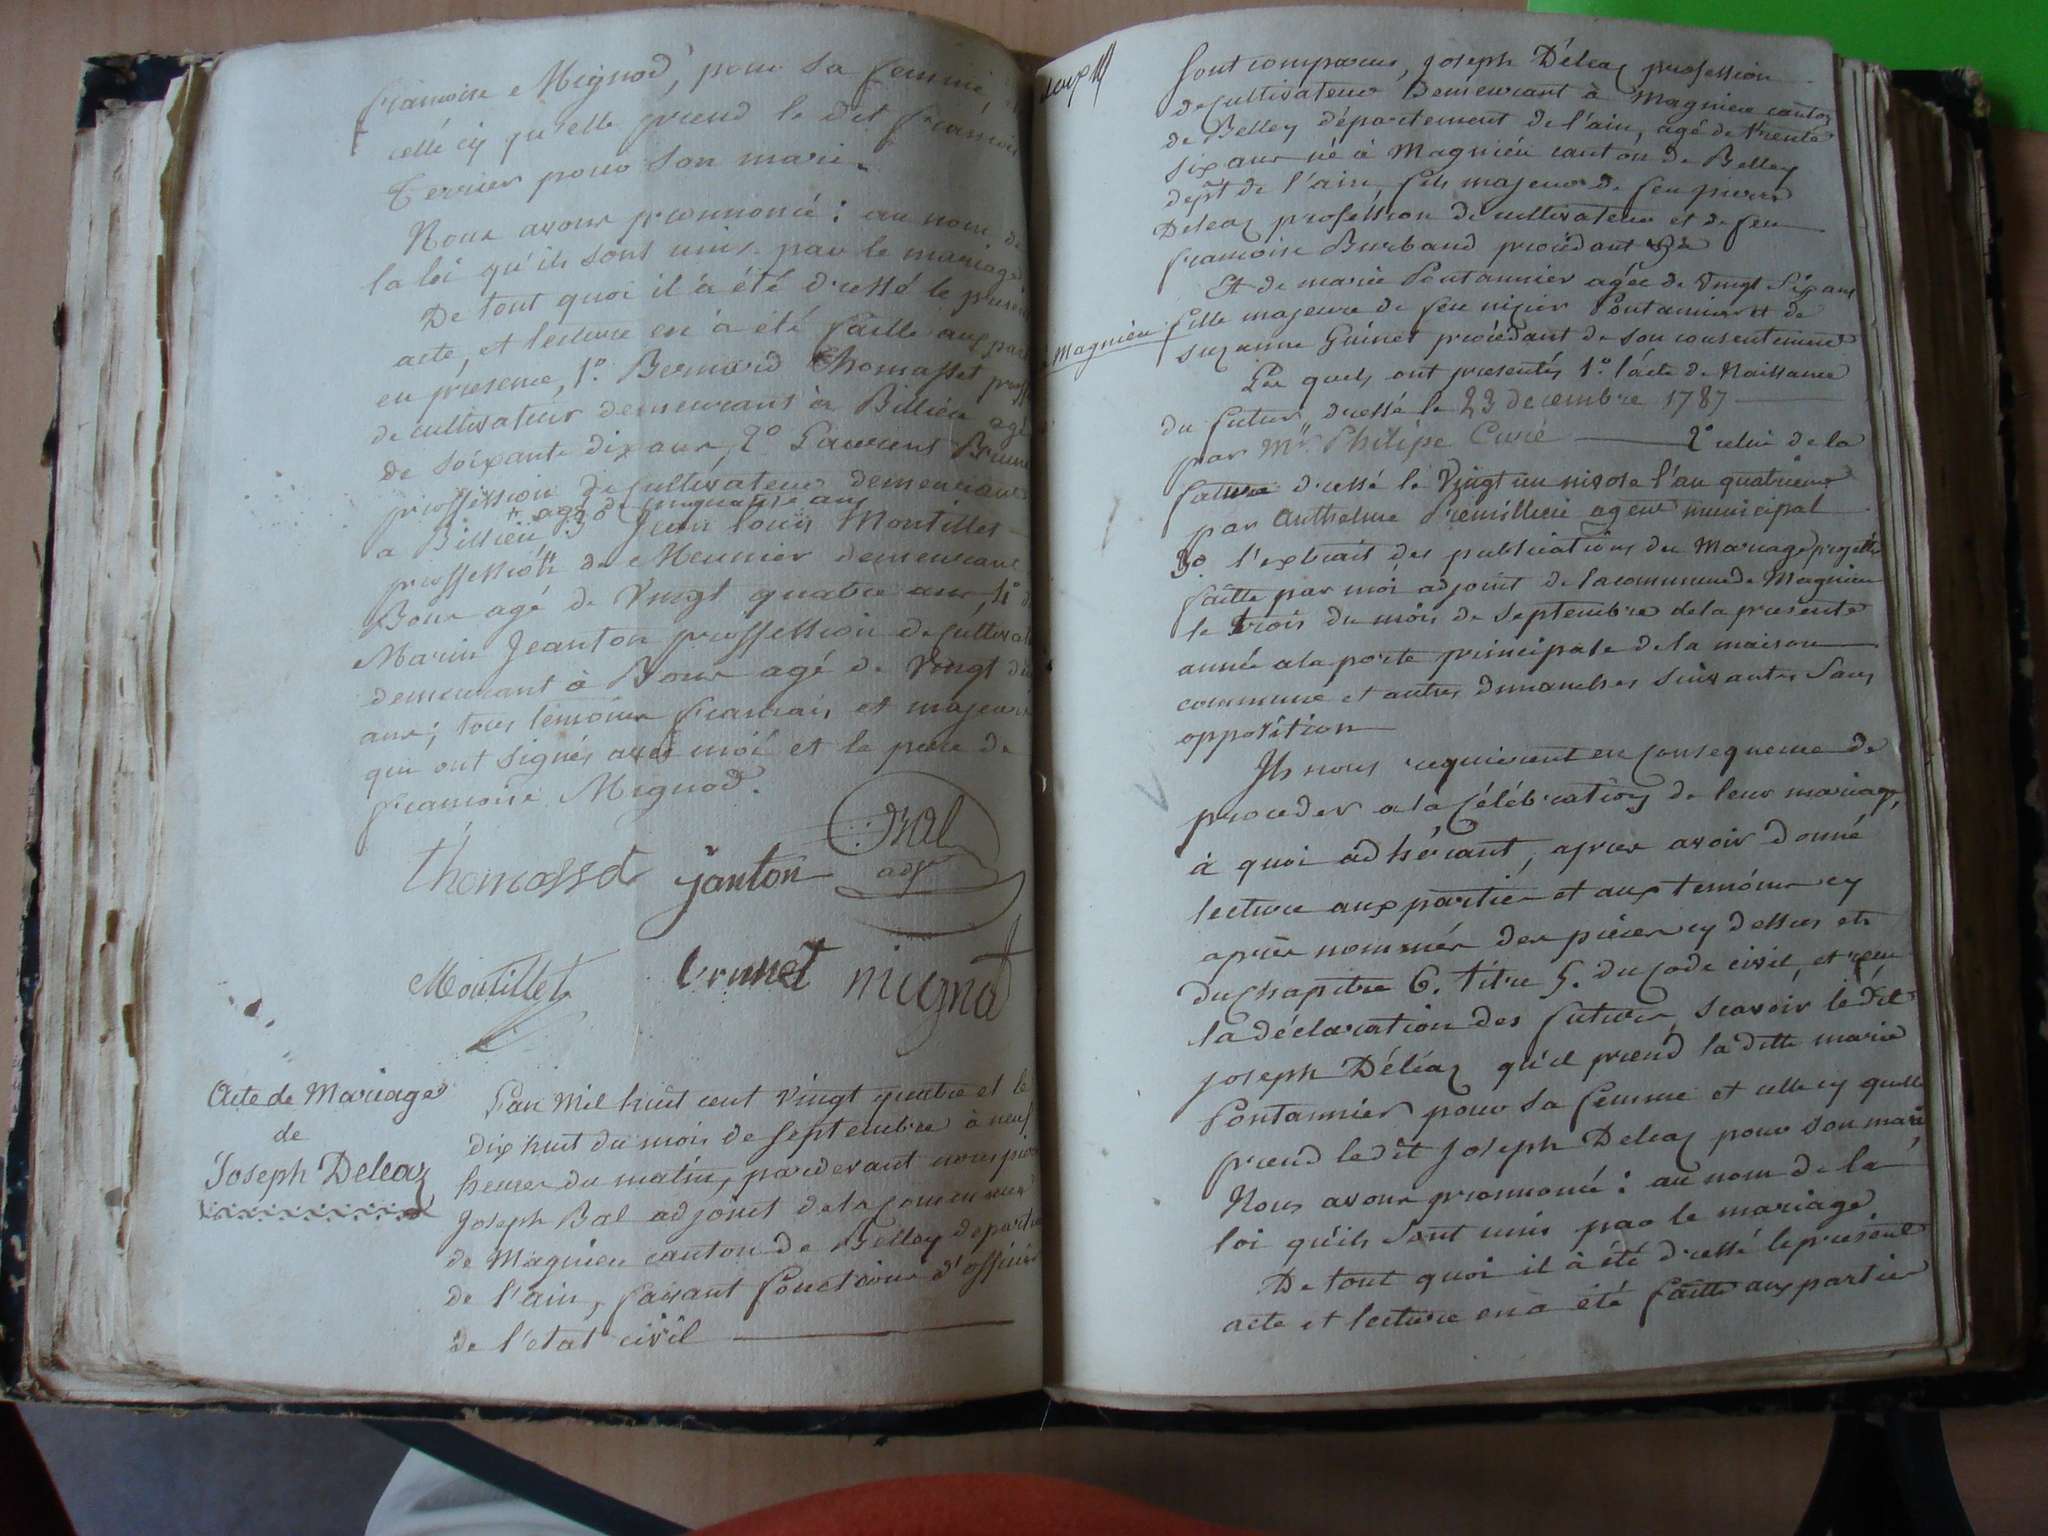 francoise Mignod, pour sa femme,
celle cy qu'elle prend le dit francois
Terrier pour son mari.
Nous avons prononcé : au nom de
la loi qu'ils sont unis par le mariage.
De tout quoi il à été dressé le present
acte, et lecture en à été faitte aux part
en presence, 1º. Bernard Thomasset proff
de cultivateur demeurant à Billieu agé
de soixante dix ans, 2º Laurent Brune
proffession de cultivateur demeurant
agé de cinquante ans
a Billieu 3º Jean louis Montillet
proffession de Meunier demeurant
Bour agé de Vingt quatre ans, 4º
Marin Jeanton proffession de cultivat
demeurant à Bour agé de Vingt
ans; tous temoins francais et majeurs
qui ont signés avec moi et le pere de
francoise Mignod.
thomasset janton Bal
adjt
Montillet brunet mignod
Acte de Mariage
de
Joseph Deleaz
L'an Mil huit cent vingt quatre et le
dix huit du mois de septembre à neuf
heures du matin, pardevant nous
Joseph Bal adjoint de la commune
de Magnieu canton de Belley depart
de l'ain, faisant fonctions d'officier
de l'etat civil
Sont comparus, joseph Déleaz profession
de cultivateur Demeurant à Magnieu canton
de Belley département de l'ain, agé de trente
six ans né à Magnieu canton de Belley
dept de l'ain, fils majeur de feu pierre
Deleaz profession de cultivateur et de feu
francoise Burbaud procédant
Et de marie Pontannier agée de vingt six ans
Magnieu
fille majeure de feu nizier Pontannier et de
suzanne Guinet procédant de son consentement
Les quels ont presentés 1º. l'acte de Naissance
du futur, dressé le 23 decembre 1787
par Mr. Philipe Curé 2º celui de la
future dressé le Vingt un nivose l'an quatrieme
par Anthelme Premillieu agent municipal
3º l'extrait des publications du Mariage projetté
faitte par moi adjoint de la commune de Magnieu
le trois du mois de septembre de la presente
année a la porte principale de la maison
commune et autres dimanches suivantes sans
opposition
Ils nous requierent en consequence de
proceder a la célébration de leur mariage,
à quoi adhérant, apres avoir donné
lecture aux parties et aux temoins cy
après nommés des pieces cy dessus et
du chapitre 6. titre 5. du code civil, et recu
la déclaration des futurs, scavoir le dit
joseph Déléaz qu'il prend la ditte marie
Pontannier pour sa femme et celle cy quelle
prend ledit joseph Deleaz pour son mari,
Nous avons prononcé : au nom de la
loi qu'ils sont unis par le mariage.
De tout quoi il à été dressé le present
acte et lecture en à été faitte aux parties